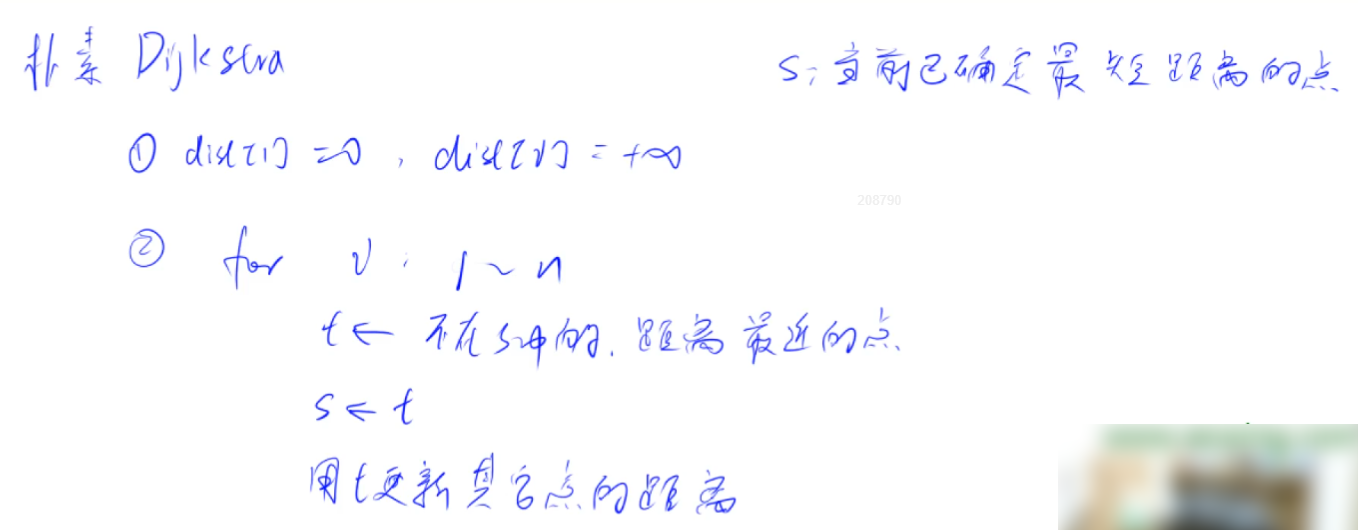 朴素 Dijkstra
s: 当前已确定最短距离的点
① dist[1] = 0, dist[v] = +∞
208790
② for v: 1 ~ n
t ← 不在s中的, 距离最近的点
s ← t
用t更新其它点的距离